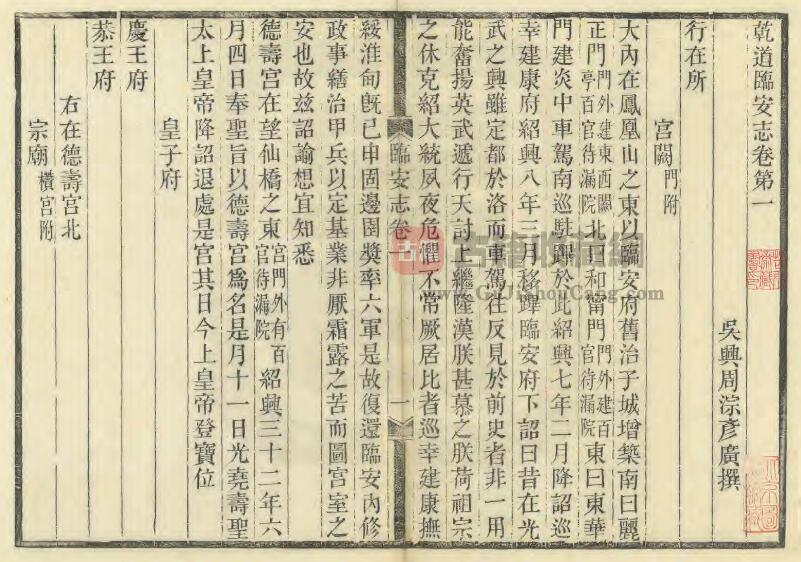 乾道臨安志卷第一
吳興周淙彥廣撰
行在所
宮闕門附
大內在鳳凰山之東以臨安府舊治子城增築南曰麗
正門門外建東西闕亭百官待漏院北曰和甯門門外建百官待漏院東曰東華
門建炎中車駕南巡駐蹕於此紹興七年二月降詔巡
幸建康府紹興八年三月移蹕臨安府下詔曰昔在光
武之興雖定都於洛而車駕往反見於前史者非一用
能奮揚英武遞行天討上繼隆漢朕甚慕之朕荷祖宗
之休克紹大統夙夜危懼不常厥居比者巡幸建康撫
臨安志卷一
一
綏淮甸旣已申固邊圉奬率六軍是故復還臨安內修
政事繕治甲兵以定基業非厭霜露之苦而圖宮室之
安也故茲詔諭想宜知悉
德壽宮在望仙橋之東宮門外有百官待漏院紹興三十二年六
月四日奉聖旨以德壽宮爲名是月十一日光堯壽聖
太上皇帝降詔退處是宮其日今上皇帝登寶位
皇子府
慶王府
恭王府
右在德壽宮北
宗廟欑宮附
古
www.GuJiShouCang.com